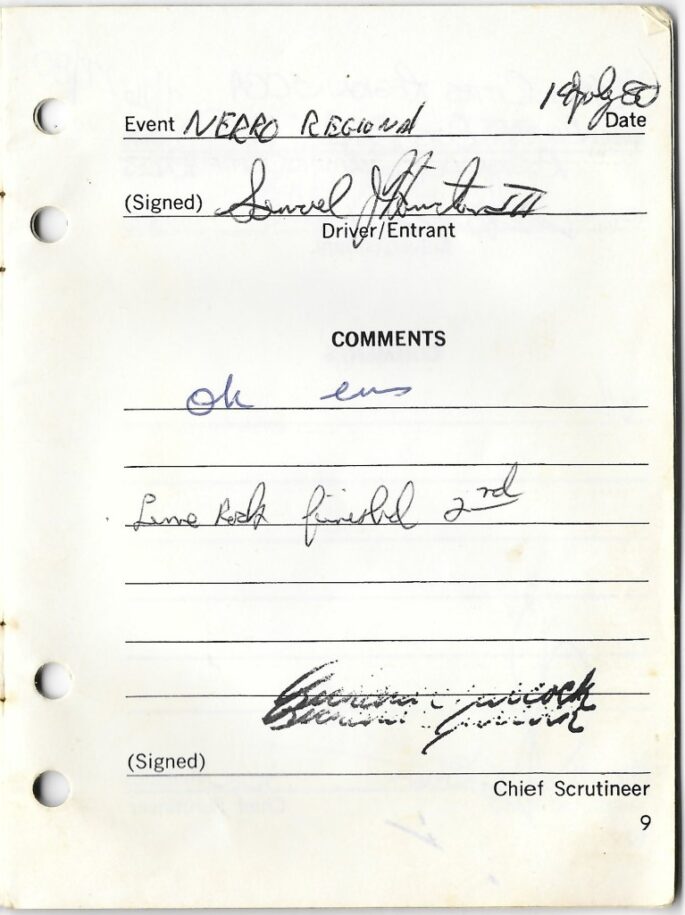 Event NERRO REGIONAL Date
(Signed) III
Driver/Entrant
COMMENTS
ok
Lime Rock finished 2nd
(Signed)
Chief Scrutineer
9